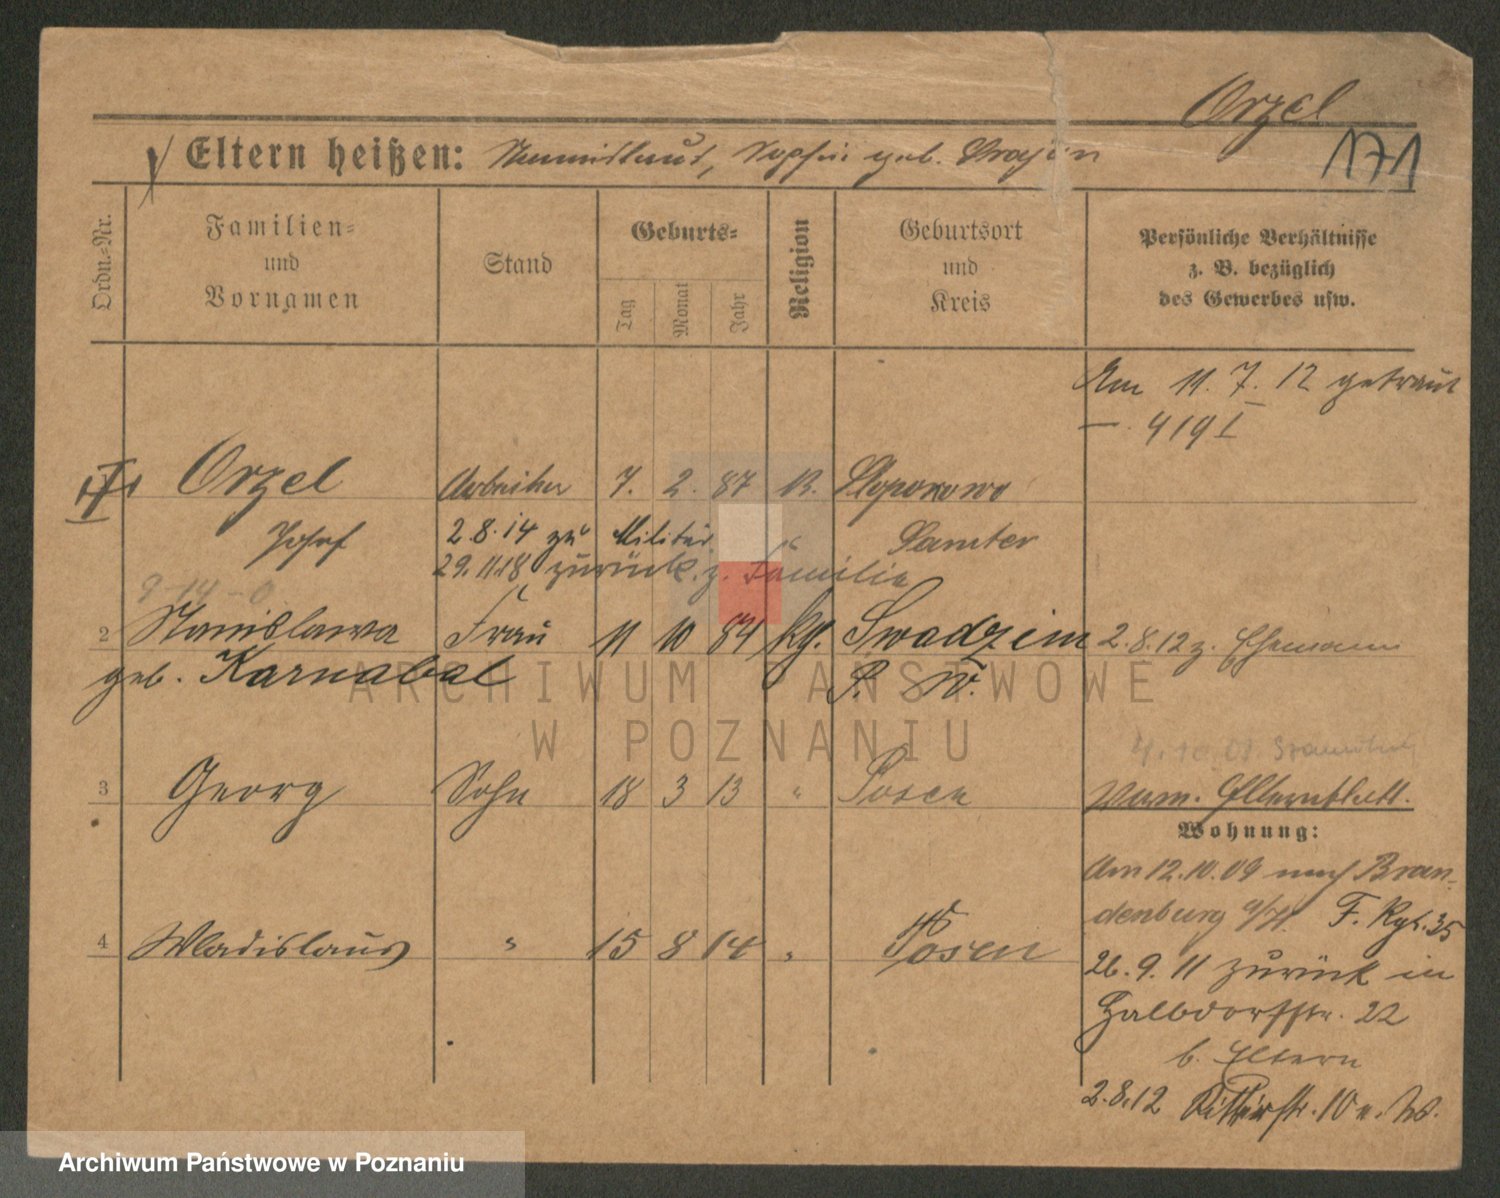 Orzel
171
Eltern heißen: geb.
Ordn.-Nr.
Familien-
und
Vornamen
Stand
Geburts-
Tag
Monat
Jahr
Religion
Geburtsort
und
Kreis
Persönliche Verhältnisse
z. B. bezüglich
des Gewerbes usw.
Am 11. 7. 12 getraut
419 I
Orzel Arbeiter 7. 2. 87 Sloponowo
Josef 2.8.14 zu Militär Samter
29.11.18 zurück z. Familie
2 Stanislawa Frau 11 10 84 kg. Swadzim 2.8.12 z. Ehemann
geb. Karnabal P. W.
3 Georg Sohn 18 3 13 " Posen
Wohnung:
Am 12.10.09 nach Bran-
denburg a/H. F. Rgt. 35
4 Wladislaus " 15 8 14 " Posen
26. 9. 11 zurück in
Halbdorfstr. 22
b. Eltern
2.8.12 Ritterstr. 10
ARCHIWUM PAŃSTWOWE
W POZNANIU
Archiwum Państwowe w Poznaniu